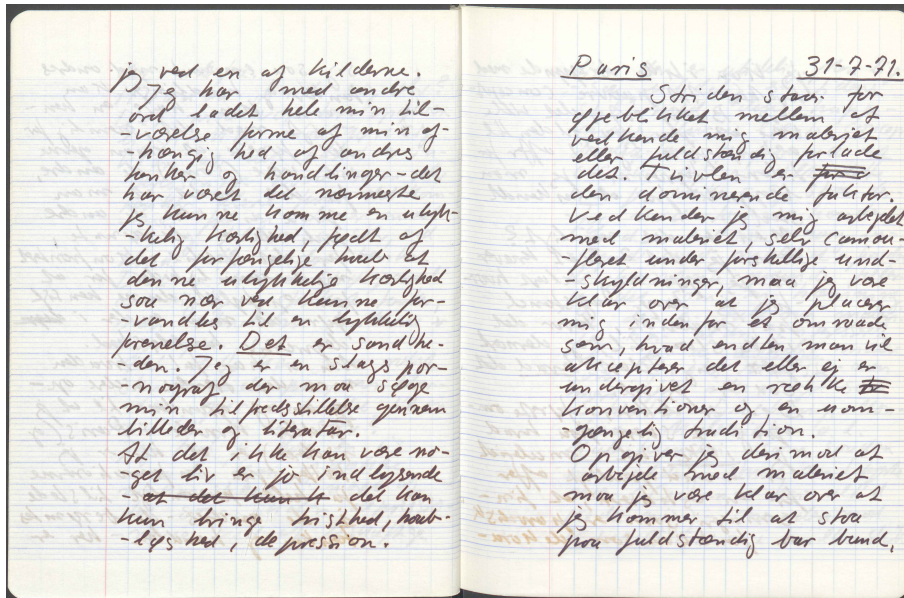 jeg ved en af kilderne.
Jeg har med andre
ord ladet hele min til-
-værelse forme af min af-
-hængighed af andres
tanker og handlinger - det
har været det nærmeste
jeg kunne komme en ulyk-
-kelig kærlighed, født af
det forfængelige haab at
denne ulykkelige kærlighed
saa nær ved kunne for-
-vandles til en lykkelig
forenelse. Det er sandhe-
-den. Jeg er en slags por-
-nograf der maa søge
min tilfredsstillelse gennem
billeder og literatur.
At det ikke kan være no-
-get liv er jo indlysende
- at det kun k det kan
kun bringe tristhed, haab-
-løshed, depression.
Paris 31-7-71.
Striden staar for
øjeblikket mellem at
vedkende mig maleriet
eller fuldstændig forlade
det. Tvivlen er
den dominerende faktor.
Vedkender jeg mig arbejdet
med maleriet, selv camou-
-fleret under forskellige und-
-skyldninger, maa jeg være
klar over at jeg placerer
mig indenfor et omraade
som, hvad enten man vil
akcepterer det eller ej er
undergivet en række
konventioner og en uom-
-gængelig tradition.
Opgiver jeg derimod at
arbejde med maleriet
maa jeg være klar over at
jeg kommer til at staa
paa fuldstændig bar bund,